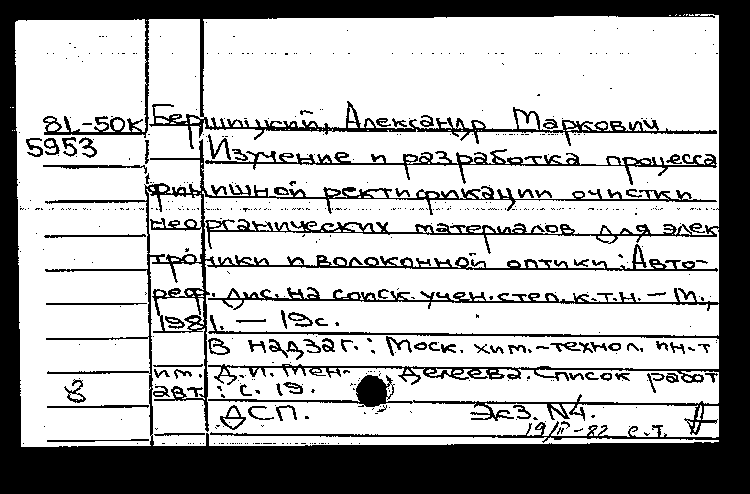 81-50к Бершицкий, Александр Маркович
5953 Изучение и разработка процесса
финишной ректификации очистки
неорганических материалов для элек
троники и волоконной оптики: Авто-
реф. дис. на соиск. учен. степ. к.т.н. – М.,
1981. – 19с.
В надзаг.: Моск. хим.-технол. ин-т
им. Д.И. Мен- делеева. Список работ
8 авт.: с. 19.
ДСП. Экз. N4.
19/II-82 е.т.